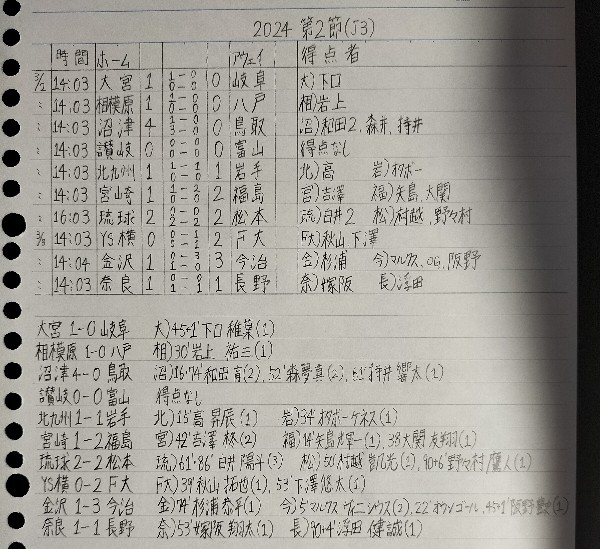 2024 第2節(J3)
時間 ホーム アウェイ 得点者
3/2 14:03 大宮 1 1-0 0-0 0 岐阜 大)下口
: 14:03 相模原 1 1-0 0-0 0 八戸 相)岩上
: 14:03 沼津 4 1-0 3-0 0 鳥取 沼)和田2、森井、持井
: 14:03 讃岐 0 0-0 0-0 0 富山 得点なし
: 14:03 北九州 1 1-1 0-0 1 岩手 北)高 岩)オタボー
: 14:03 宮崎 1 1-2 0-0 2 福島 宮)吉澤 福)矢島、大関
: 16:03 琉球 2 0-0 2-2 2 松本 流)白井2 松)村越、野々村
3/3 14:03 YS横 0 0-1 0-1 2 F大 F大)秋山 下澤
: 14:04 金沢 1 0-3 1-0 3 今治 金)杉浦 今)マルクス、OG、阪野
: 14:03 奈良 1 0-0 1-1 1 長野 奈)塚阪 長)浮田
大宮 1-0 岐阜 大)45+1'下口 稚葉(1)
相模原 1-0 八戸 相)30'岩上 祐三(1)
沼津 4-0 鳥取 沼)16'74'和田育(2)、52'森夢真(2)、61'持井 響太(1)
讃岐 0-0 富山 得点なし
北九州 1-1 岩手 北)15'高 昇辰(1) 岩)34'オタボーケネス(1)
宮崎 1-2 福島 宮)42'吉澤 柊(2) 福)14'矢島 (1)、38'大関 友翔(1)
琉球 2-2 松本 流)61'86'白井 陽斗(3) 松)50'村越 凱光(2)、90+6'野々村 鷹人(1)
YS横 0-2 F大 F大)39'秋山 拓也(1)、53'下澤 悠太(1)
金沢 1-3 今治 金)74'杉浦恭平(1) 今)5'マルクス ヴィニシウス(2)、22'オウンゴール、45+1'阪野 (1)
奈良 1-1 長野 奈)53'塚阪 翔太(1) 長)90+4'浮田 健誠(1)